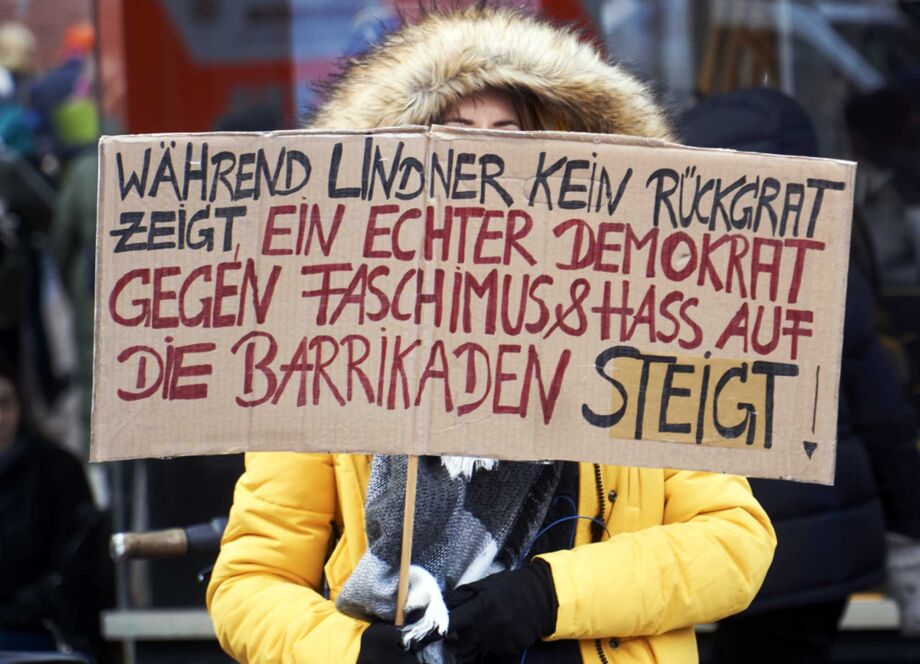 WÄHREND LINDNER KEIN RÜCKGRAT
ZEIGT, EIN ECHTER DEMOKRAT
GEGEN FASCHIMUS & HASS AUF
DIE BARRIKADEN STEIGT!